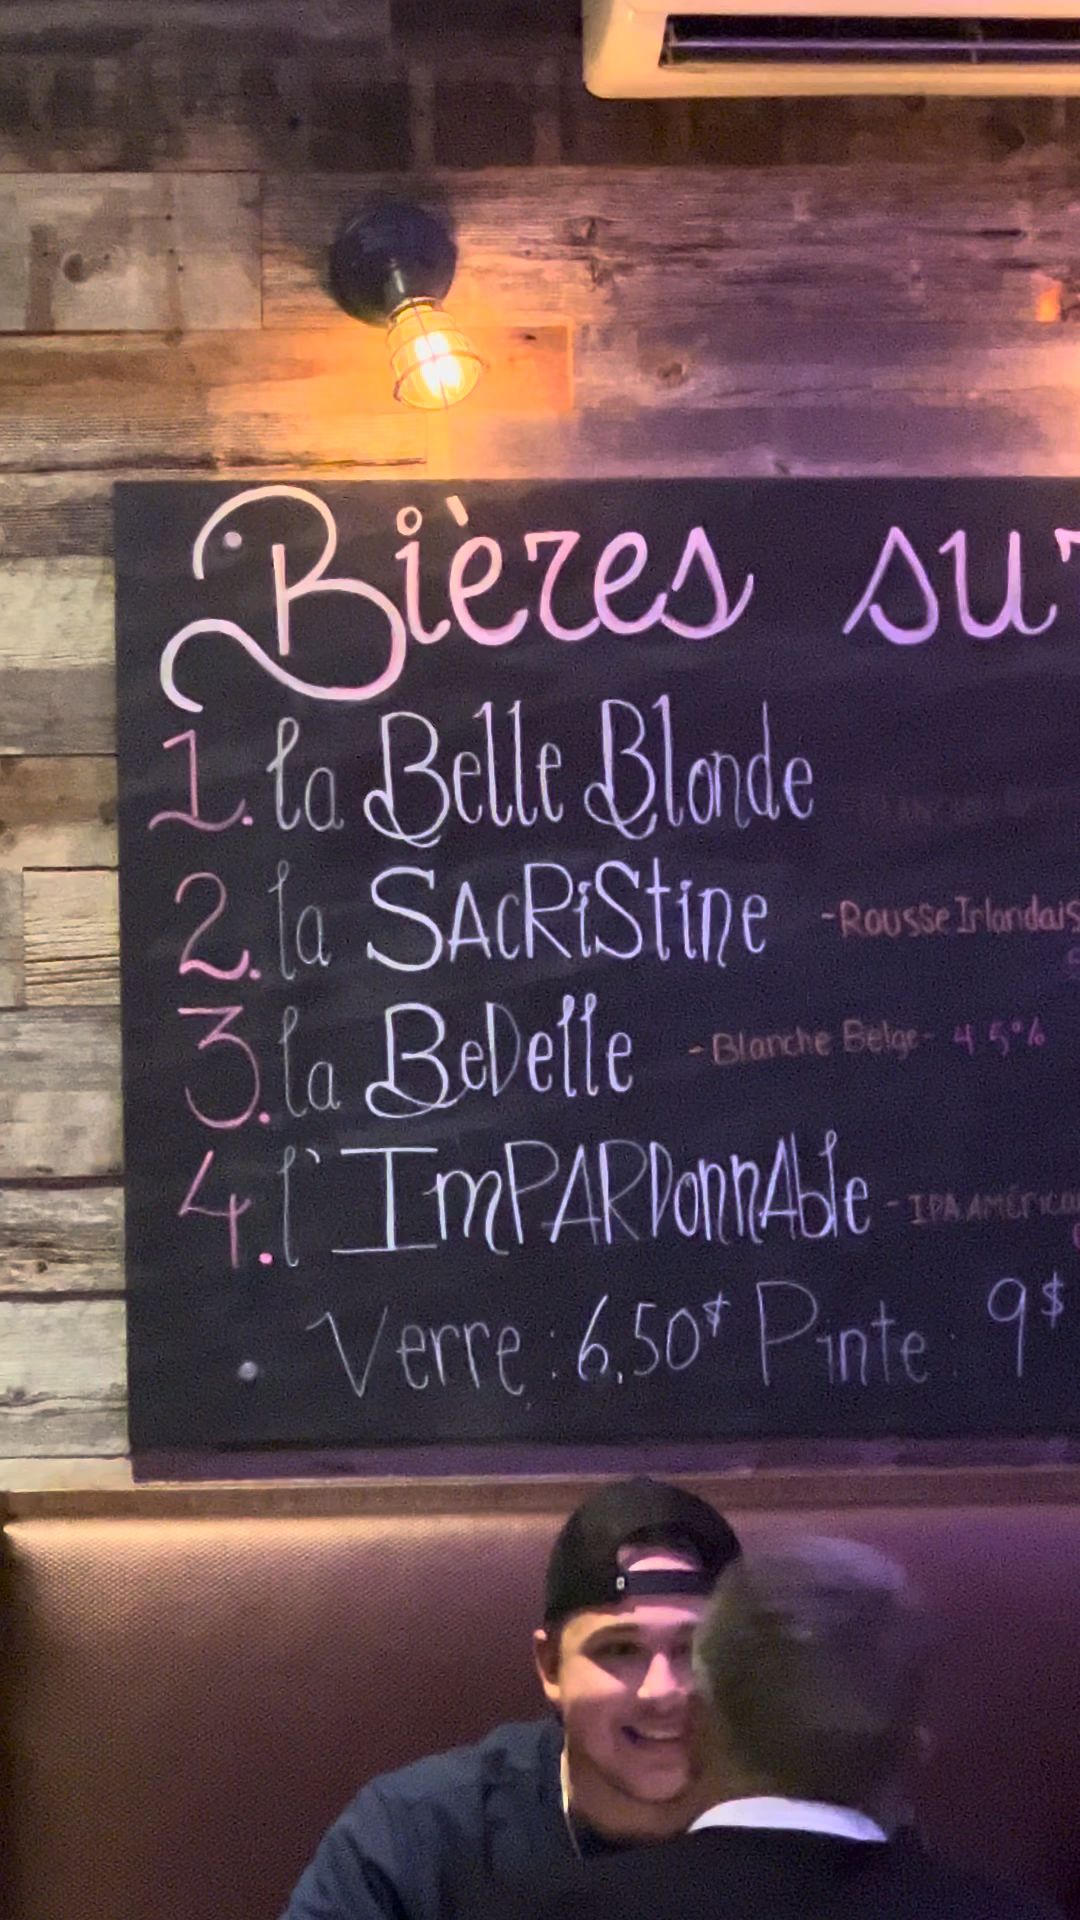 Bières sur
1. la Belle Blonde
2. la SAcRiStine -Rousse Irlandais
3. la BeDelle - Blanche Belge- 4.5%
4. l'ImPARDonnAble - IPA AMÉRICA
Verre : 6.50$ Pinte : 9$